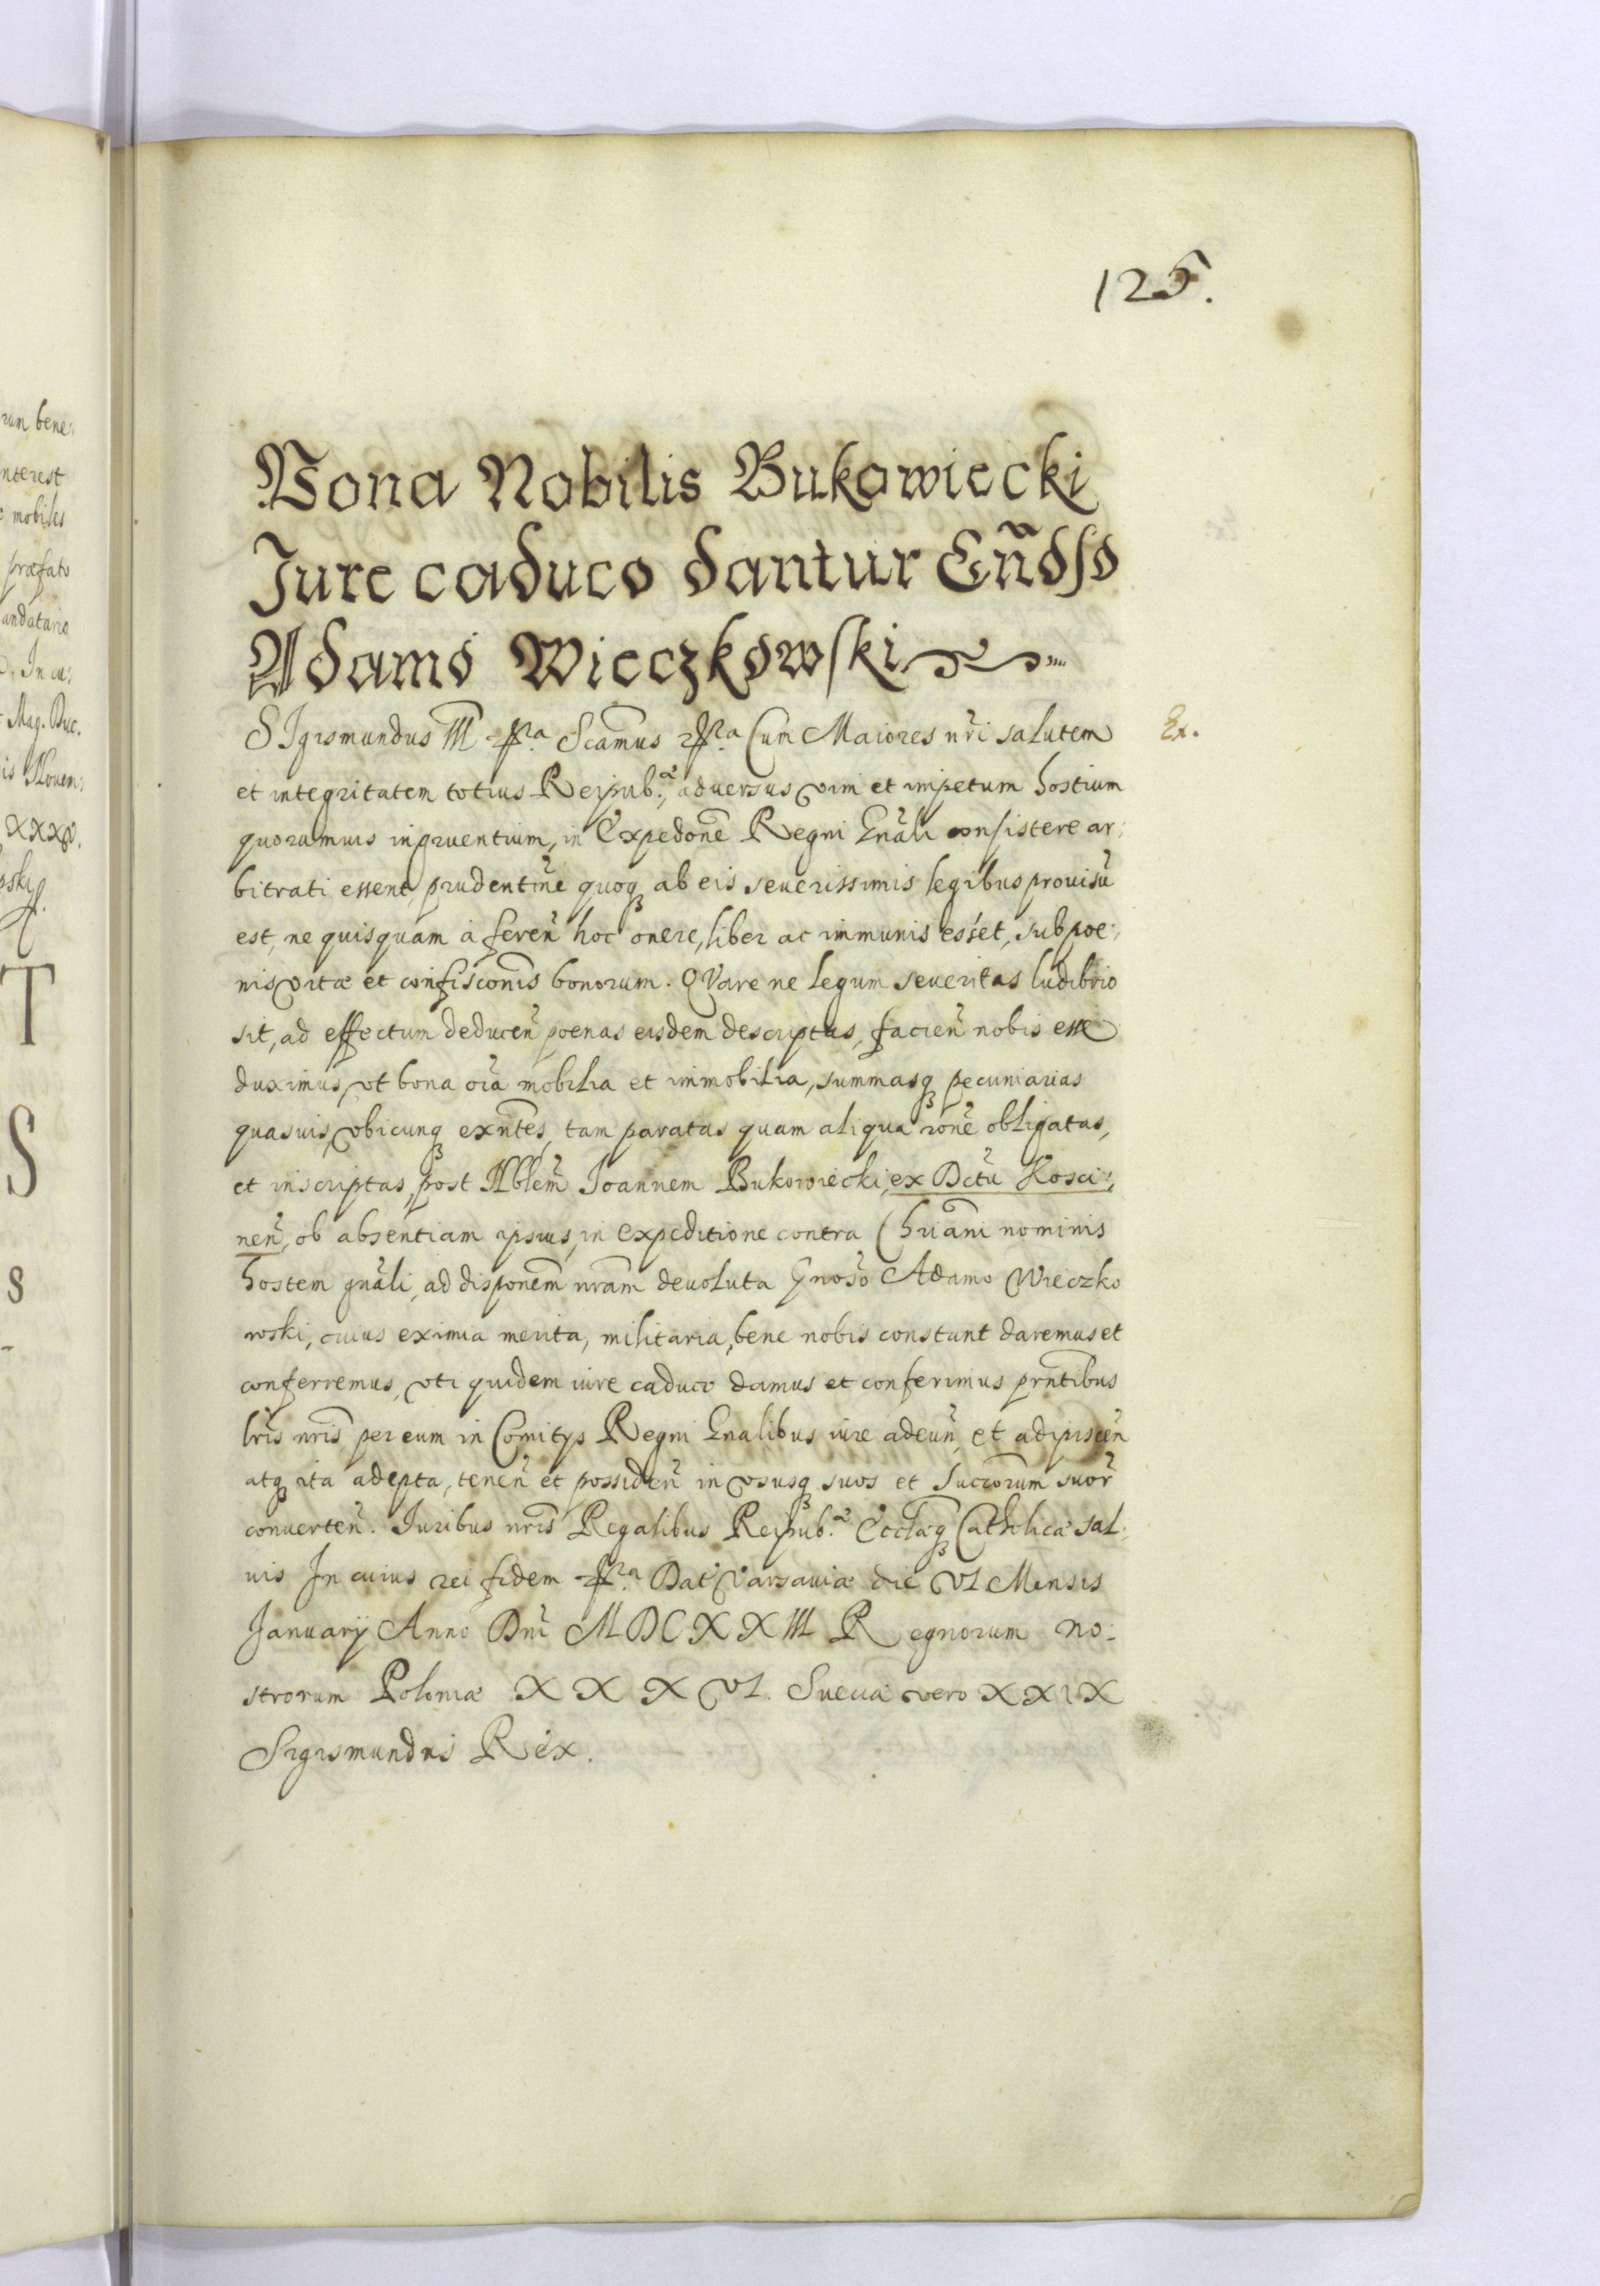 125.
Bona Nobilis Bukowiecki
Jure caduco dantur Gñoso
Adamo Wieczkowski
SIgismundus III Scamus Cum Maiores nr̃i salutem
Ex.
et integritatem totius Reipub.æ, adversus vim et impetum hostium
quorumuis ingruentium, in Expedonẽ Regni Gnãli consistere ar:
bitrati essent, prudentm̃e quoq ab eis seuerissimis legibus prouisũ
est, ne quisquam à fereñ hoc onere, liber ac immunis esset, sub poe:
nis vitæ et confisconis bonorum. QVare ne legum seueritas ludibrio
sit, ad effectum deduceñ poenas eisdem descriptas, facieñ nobis esse
duximus, vt bona oĩa mobilia et immobilia, summasq pecuniarias
quasuis, vbicunq exñtes, tam paratas quam aliqua rõne obligatas,
et inscriptas, post Nblem̃ Joannem Bukowiecki, ex Dctũ Kosci:
neñ, ob absentiam ipsius, in expeditione contra Chriãni nominis
hostem gnãli, ad disponem̃ nrãm devoluta Gnosõ Adamo Wieczko
wski, cuius eximia merita, militaria, bene nobis constant daremus et
conferremus, vti quidem iure caduco damus et conferimus prñtibus
lris̃ nris̃ per eum in Comitys Regni Gnalibus iure adeuñ, et adipisceñ
atq ita adepta, teneñ et possideñ in vsusq suos et Succorum suor̃
conuerteñ. Juribus nris̃ Regalibus Reipub.æ Ecclæq Catholicæ sal:
uis In cuius rei fidem Dat Varsauiæ die VI Mensis
January Anno Dni MDCXXIII Regnorum no:
strorum Poloniæ XXXVI. Sueciæ vero XXIX
Sigismundus Rex.